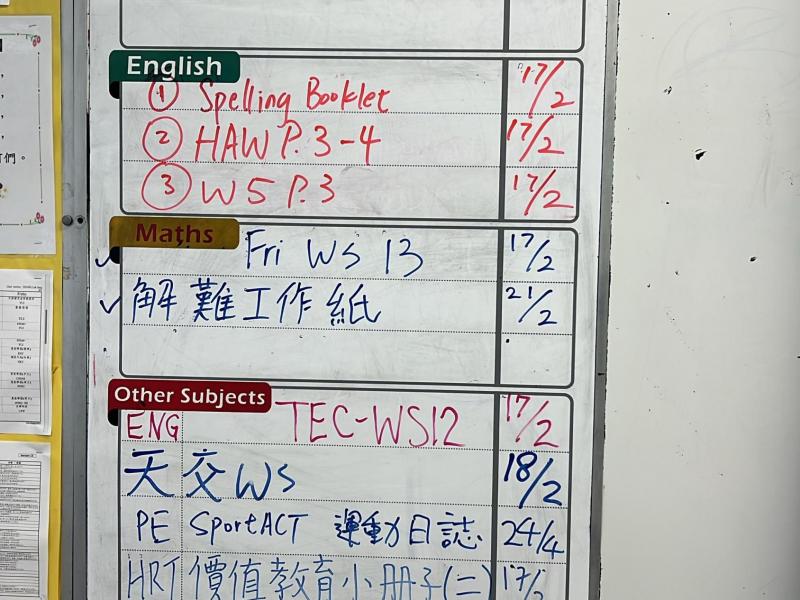 English
① Spelling Booklet 17/2
② HAW P.3-4 17/2
③ WS P.3 17/2
Maths
Fri WS 13 17/2
解難工作紙 21/2
Other Subjects
ENG TEC-WS12 17/2
天交WS 18/2
PE SportACT 運動日誌 24/4
HRT 價值教育小册子(二) 17/2
們。